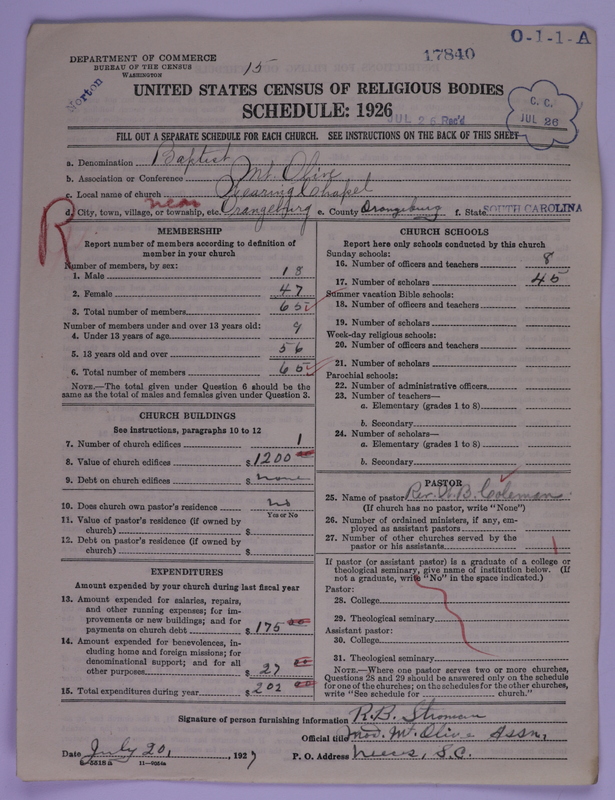 O-1-1-A
17840
DEPARTMENT OF COMMERCE
BUREAU OF THE CENSUS
WASHINGTON
15
Norton
UNITED STATES CENSUS OF RELIGIOUS BODIES
SCHEDULE: 1926
JUL 26 Rec'd
C. C.
JUL 26
FILL OUT A SEPARATE SCHEDULE FOR EACH CHURCH. SEE INSTRUCTIONS ON THE BACK OF THIS SHEET
a. Denomination Baptist
b. Association or Conference Mt. Olive
c. Local name of church Chapel
d. City, town, village, or township, etc. near Orangeburg e. County Orangeburg f. State SOUTH CAROLINA
R
MEMBERSHIP
Report number of members according to definition of
member in your church
Number of members, by sex:
1. Male 18
2. Female 47
3. Total number of members 65
Number of members under and over 13 years old:
4. Under 13 years of age 9
5. 13 years old and over 56
6. Total number of members 65
NOTE.—The total given under Question 6 should be the
same as the total of males and females given under Question 3.
CHURCH BUILDINGS
See instructions, paragraphs 10 to 12
7. Number of church edifices 1
8. Value of church edifices $ 1200 00
9. Debt on church edifices $ none
10. Does church own pastor's residence? no
Yes or No
11. Value of pastor's residence (if owned by
church) $
12. Debt on pastor's residence (if owned by
church) $
EXPENDITURES
Amount expended by your church during last fiscal year
13. Amount expended for salaries, repairs,
and other running expenses; for im-
provements or new buildings; and for
payments on church debt $ 175 00
14. Amount expended for benevolences, in-
cluding home and foreign missions; for
denominational support; and for all
other purposes $ 27 00
15. Total expenditures during year $ 202 00
CHURCH SCHOOLS
Report here only schools conducted by this church
Sunday schools:
16. Number of officers and teachers 8
17. Number of scholars 45
Summer vacation Bible schools:
18. Number of officers and teachers
19. Number of scholars
Week-day religious schools:
20. Number of officers and teachers
21. Number of scholars
Parochial schools:
22. Number of administrative officers
23. Number of teachers—
a. Elementary (grades 1 to 8)
b. Secondary
24. Number of scholars—
a. Elementary (grades 1 to 8)
b. Secondary
PASTOR
25. Name of pastor Rev. B. Coleman
(If church has no pastor, write "None")
26. Number of ordained ministers, if any, em-
ployed as assistant pastors
27. Number of other churches served by the
pastor or his assistants
If pastor (or assistant pastor) is a graduate of a college or
theological seminary, give name of institution below. (If
not a graduate, write "No" in the space indicated.)
Pastor:
28. College
29. Theological seminary
Assistant pastor:
30. College
31. Theological seminary
NOTE.—Where one pastor serves two or more churches,
Questions 28 and 29 should be answered only on the schedule
for one of the churches; on the schedules for the other churches,
write "See schedule for church."
Signature of person furnishing information R.B. Stroman
Official title Mod. Mt. Olive Assn.
Date July 20, 1927 P. O. Address S.C.